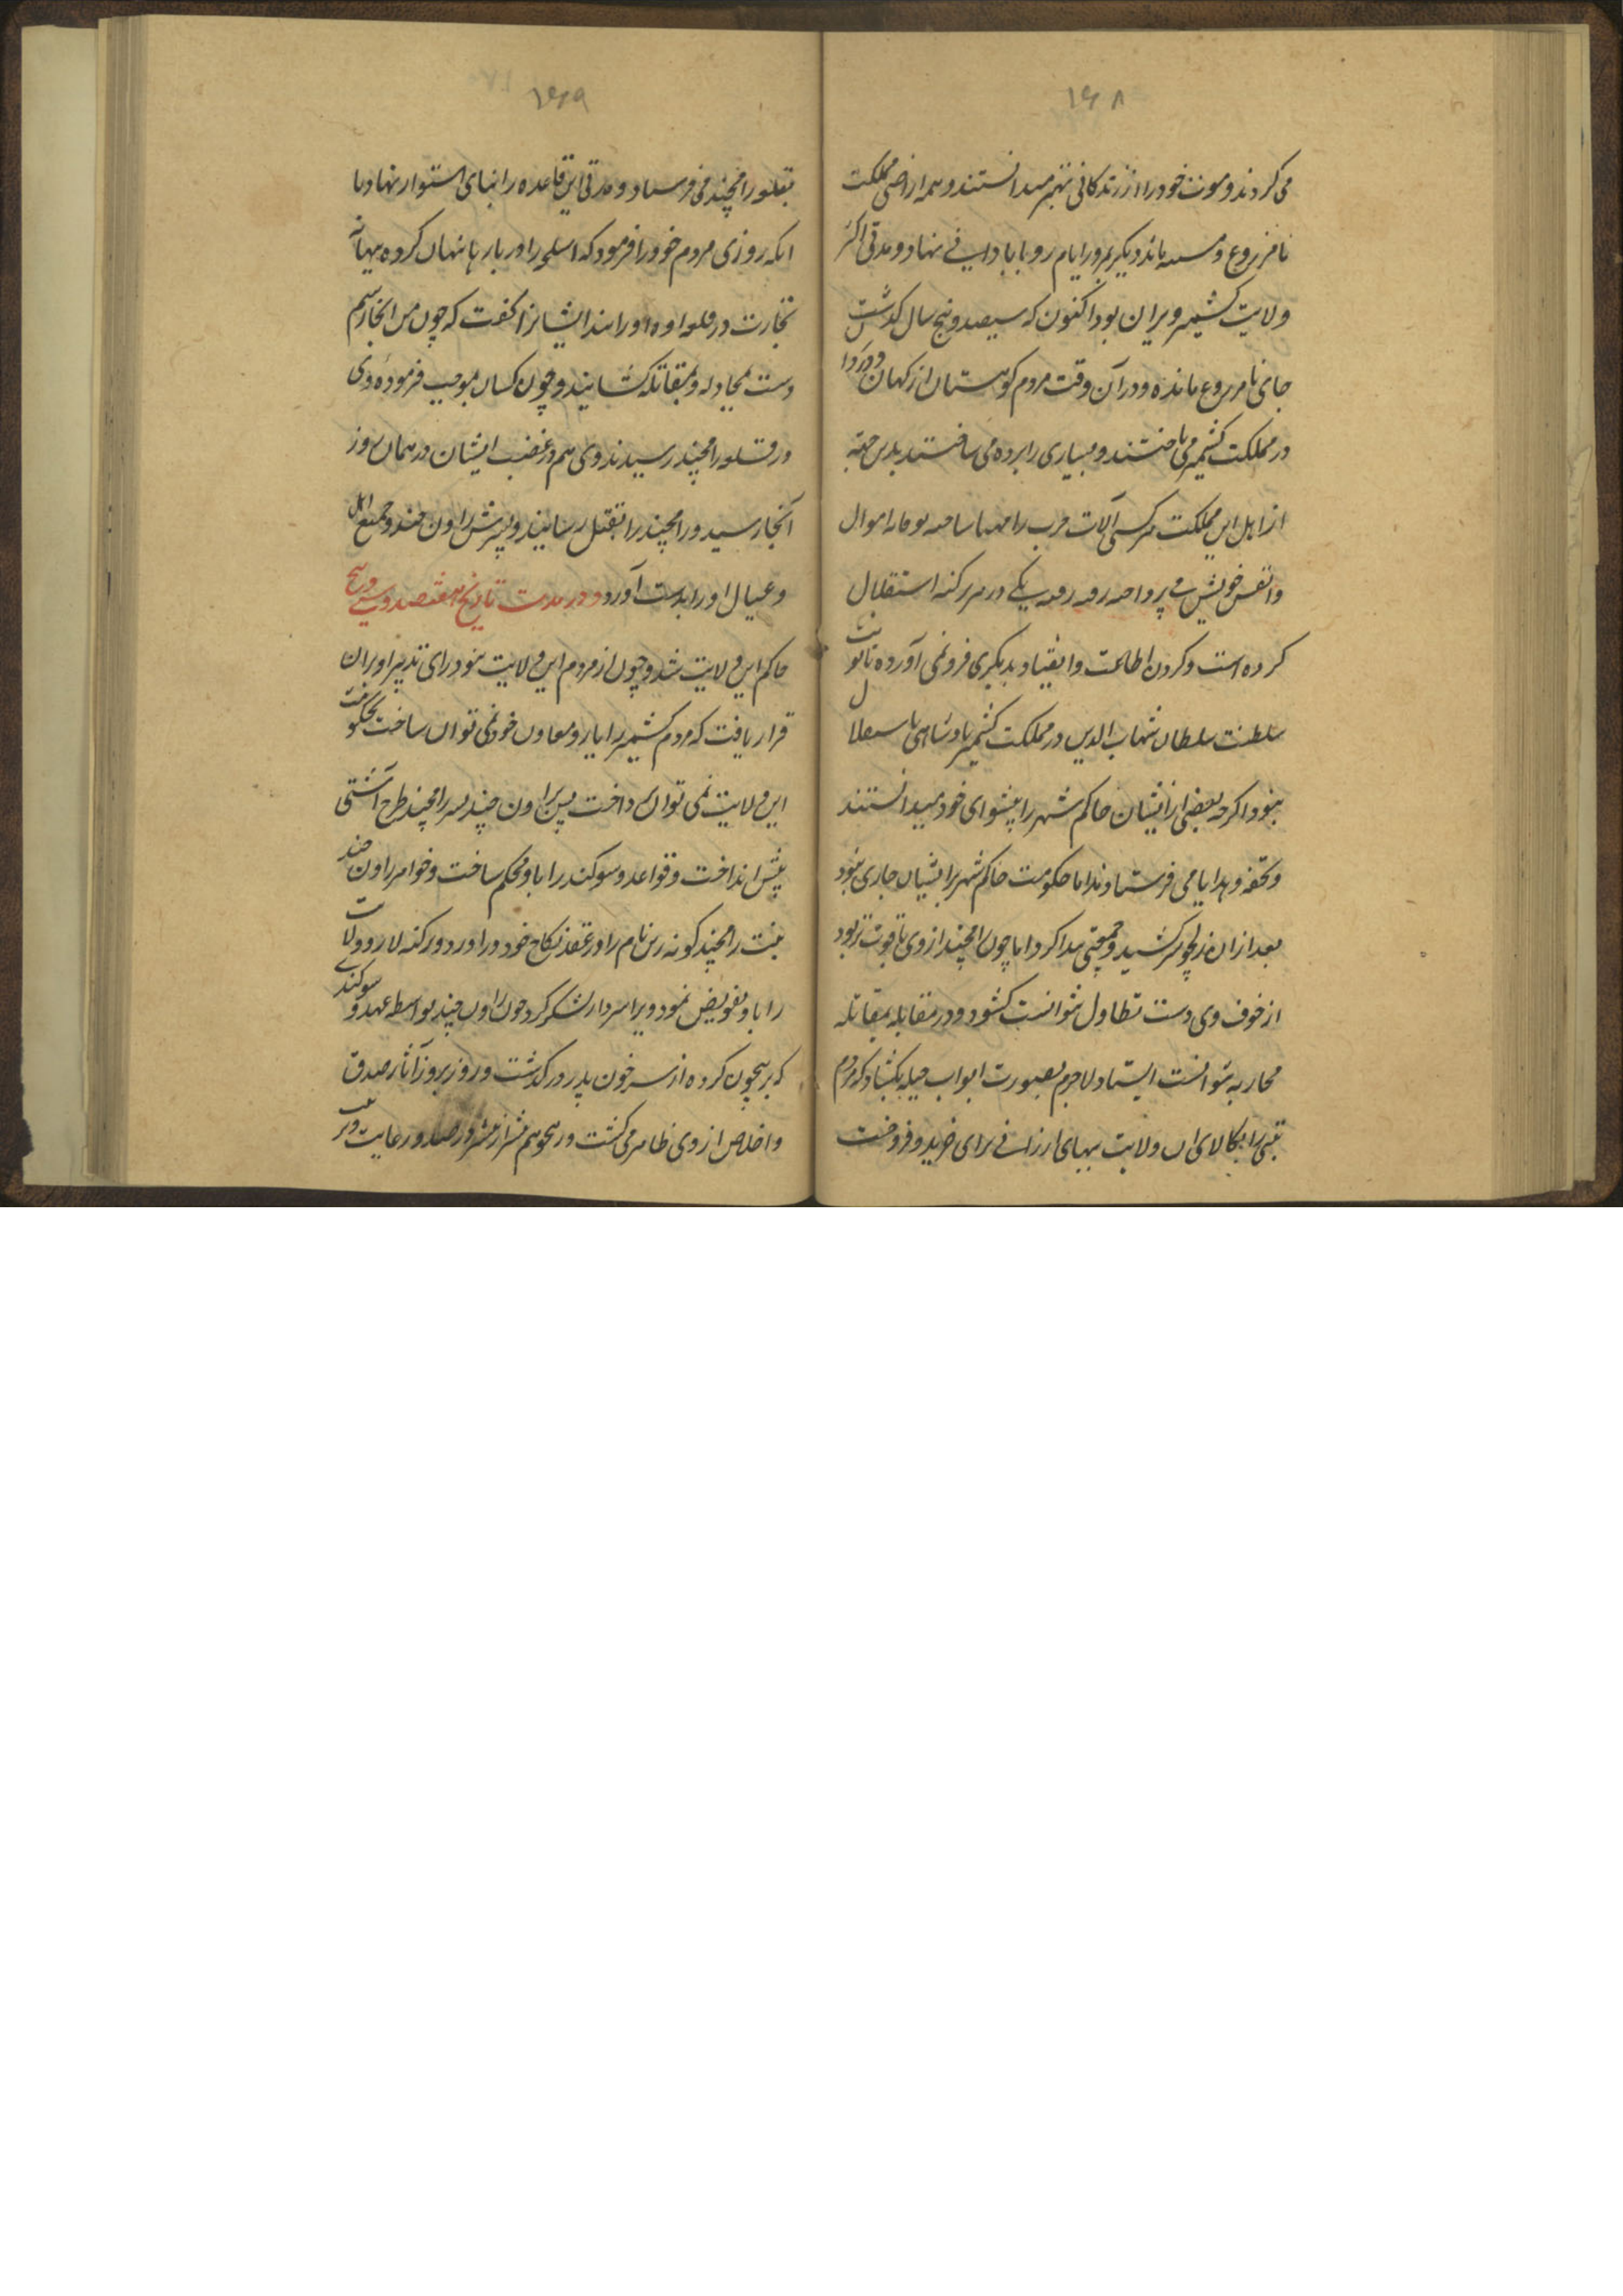 ۱۶۸
می کردند و موت خود را از زندکانی بهتر میدانستند و همه اراضی مملکت
نامزروع و ماند دیکر بمرور ایام رو بابادانی نهاد و مدتی اکثر
ولایت کشمیر ویران بود اکنون که سیصد و پنج سال کذشت
جای نامزروع مانده و در آن وقت مردم کوهستان از کهان
در مملکت کشمیر می تاختند و بسیاری را برده می ساختند بدین جهة
از اهل این مملکت هر کسی آلات حرب را مهیا ساخته اموال
و انفس خویش می در هر رکنه استقلال
کرده است و کردن اطاعت و انقیاد بدیکری فرو نمی آورده تا نوبت
سلطنت سلطان شهاب الدین در مملکت کشمیر پادشاهی باستقلال
نبود اکرچه بعضی از ایشان حاکم شهر را پیشوای خود میدانستند
و تحفه و هدایا می فرستادند اما حکومت حاکم شهر بر ایشان جاری نبود
بعد از ان رنچو سر کشید و جمعیتی پیدا کرد اما چون رامچند از وی با قوت تر بود
از خوف وی دست تطاول نتوانست کشود و در مقابله بمقاتله
محاربه نتوانست ایستاد لاجرم بصورت ابواب حیله بکشاد که مردم
تبتی را بکالای ان ولایت ببهای ارزانی برای خرید و فروخت
۱۶۹
بقلعه رامچند می فرستاد و مدتی این قاعده را بنای استوار نهاد تا
انکه روزی مردم خود را فرمود که اسلحه را در بار ها پنهان کرده ببهانه
تجارت در قلعه او در ایند ایشانرا کفت که چون من انجا رسم
دست بمجادله و بمقاتله کشایند و چون کسان بموجب فرموده وی
در قلعه رامچند رسیدند وی هم در عقب ایشان در همان روز
آنجا رسید و رامچند را بقتل رسانیند و پسرش راون چند و جمیع اهل
و عیال او را بدست آورد و در مدت تاریخ هفتصد و سی و پنج
حاکم این ولایت شد و چون از مردم این ولایت نبود رای تدبیر او بران
قرار یافت که مردم کشمیر را یار و معاون خود نمی توان ساخت بحکومت
این ولایت نمی توان پرداخت پس براون چند پسر رامچند طرح آشتی
پیش انداخت و قواعد و سوکند را باو محکم ساخت و خواهر راون چند
بنت رامچند کوته رین نام را در عقد نکاح خود در اورد و رکنه لار و ولایت
را باو تفویض نمود و ویرا سردار لشکر کرد چون راون چند بواسطه عهد و سوکند
که برنچون کرده از سر خون پدر در کذشت و روز بروز آثار صدق
و اخلاص از وی ظاهر می کشت و رنچو هم در صدد رعایت